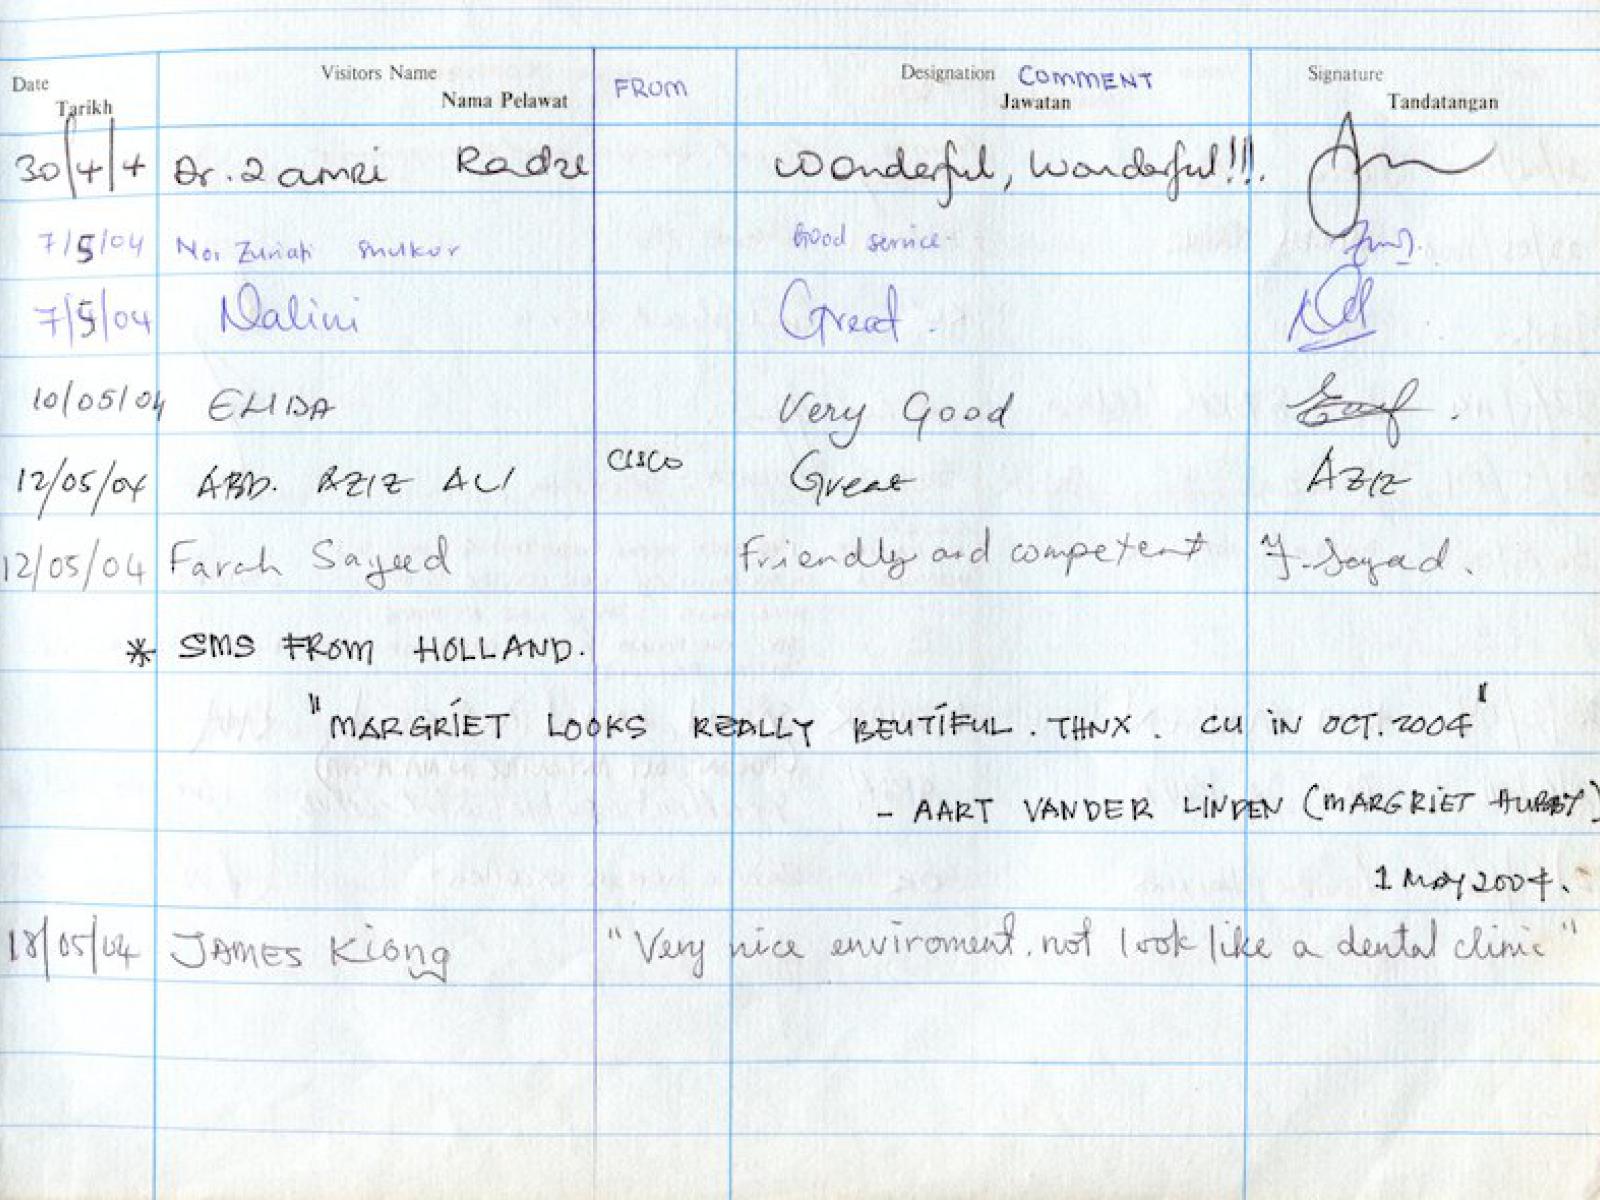 Date Visitors Name FROM Designation COMMENT Signature
Tarikh Nama Pelawat Jawatan Tandatangan
30/4/4 Dr. Zamri Radzi Wonderful, Wonderful!!!.
7/5/04 Nor Zuriati Shukor Good service
7/5/04 Nalini Great.
10/05/04 ELIDA Very Good
12/05/04 ABD. AZIZ ALI CISCO Great AZIZ
12/05/04 Farah Sayeed Friendly and competent F. Sayed.
* SMS FROM HOLLAND.
"MARGRIET LOOKS REALLY BEUTIFUL. THNX. CU IN OCT. 2004"
- AART VANDER LINDEN (MARGRIET HUBBY)
1 May 2004.
18/05/04 JAMES Kiong "Very nice enviroment. not look like a dental clinic"